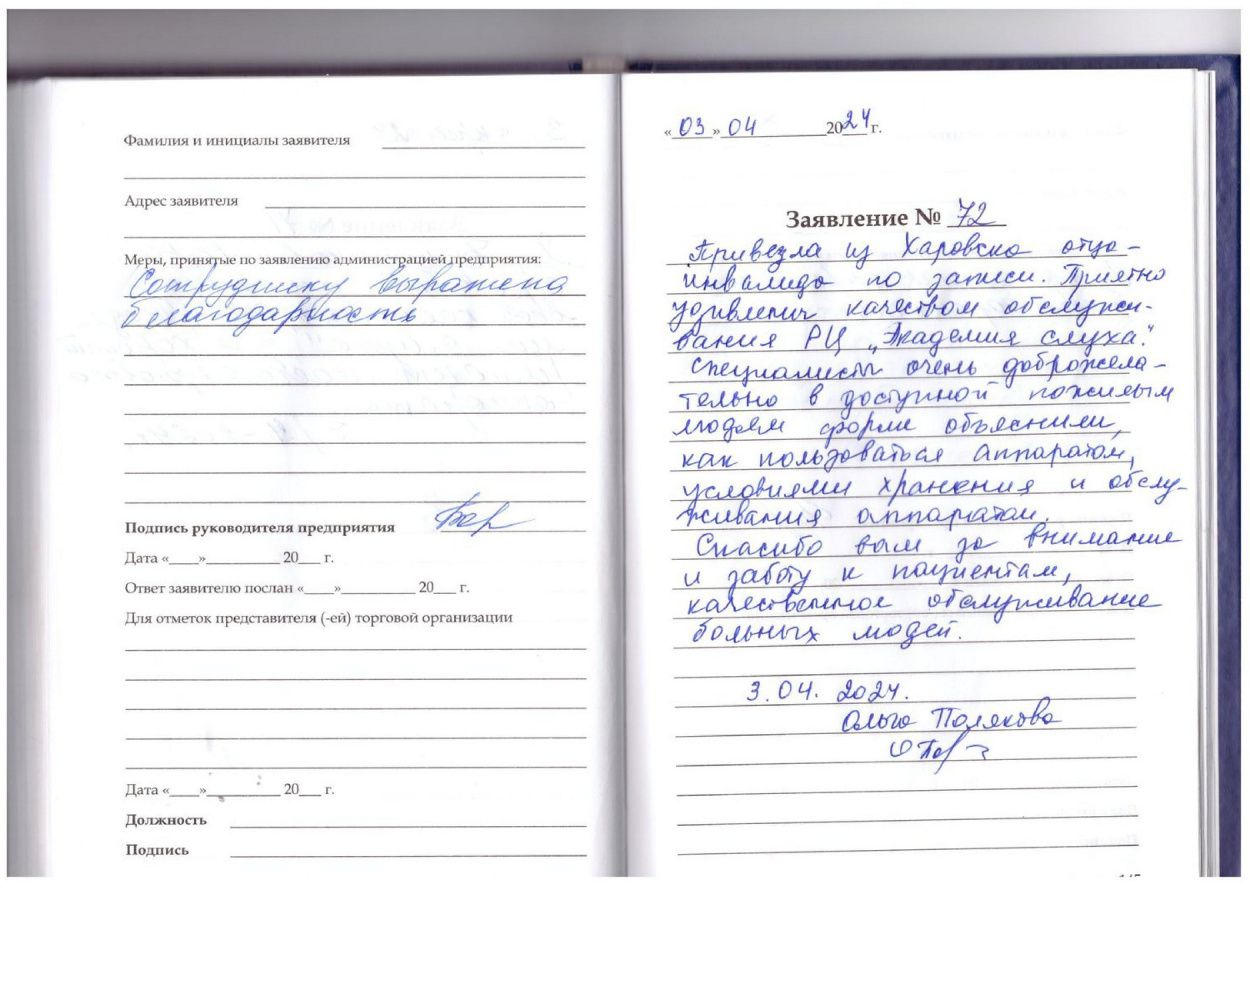 Фамилия и инициалы заявителя
Адрес заявителя
Меры, принятые по заявлению администрацией предприятия:
Сотруднику выражена
благодарность
Подпись руководителя предприятия
Дата «____»__________ 20___ г.
Ответ заявителю послан «____»__________ 20___ г.
Для отметок представителя (-ей) торговой организации
Дата «____»__________ 20___ г.
Должность
Подпись
« 03 » 04 2024 г.
Заявление № 72
Привезла из Харовска отца-
инвалида по записи. Приятно
удивлены качеством обслужи-
вания РЦ „Академия слуха".
Специалисты очень доброжела-
тельно в доступной пожилым
людям форме объяснили,
как пользоваться аппаратом,
условиями хранения и обслу-
живания аппаратом.
Спасибо вам за внимание
и заботу к пациентам,
качественное обслуживание
больных людей.
3.04.2024.
Ольга Полякова